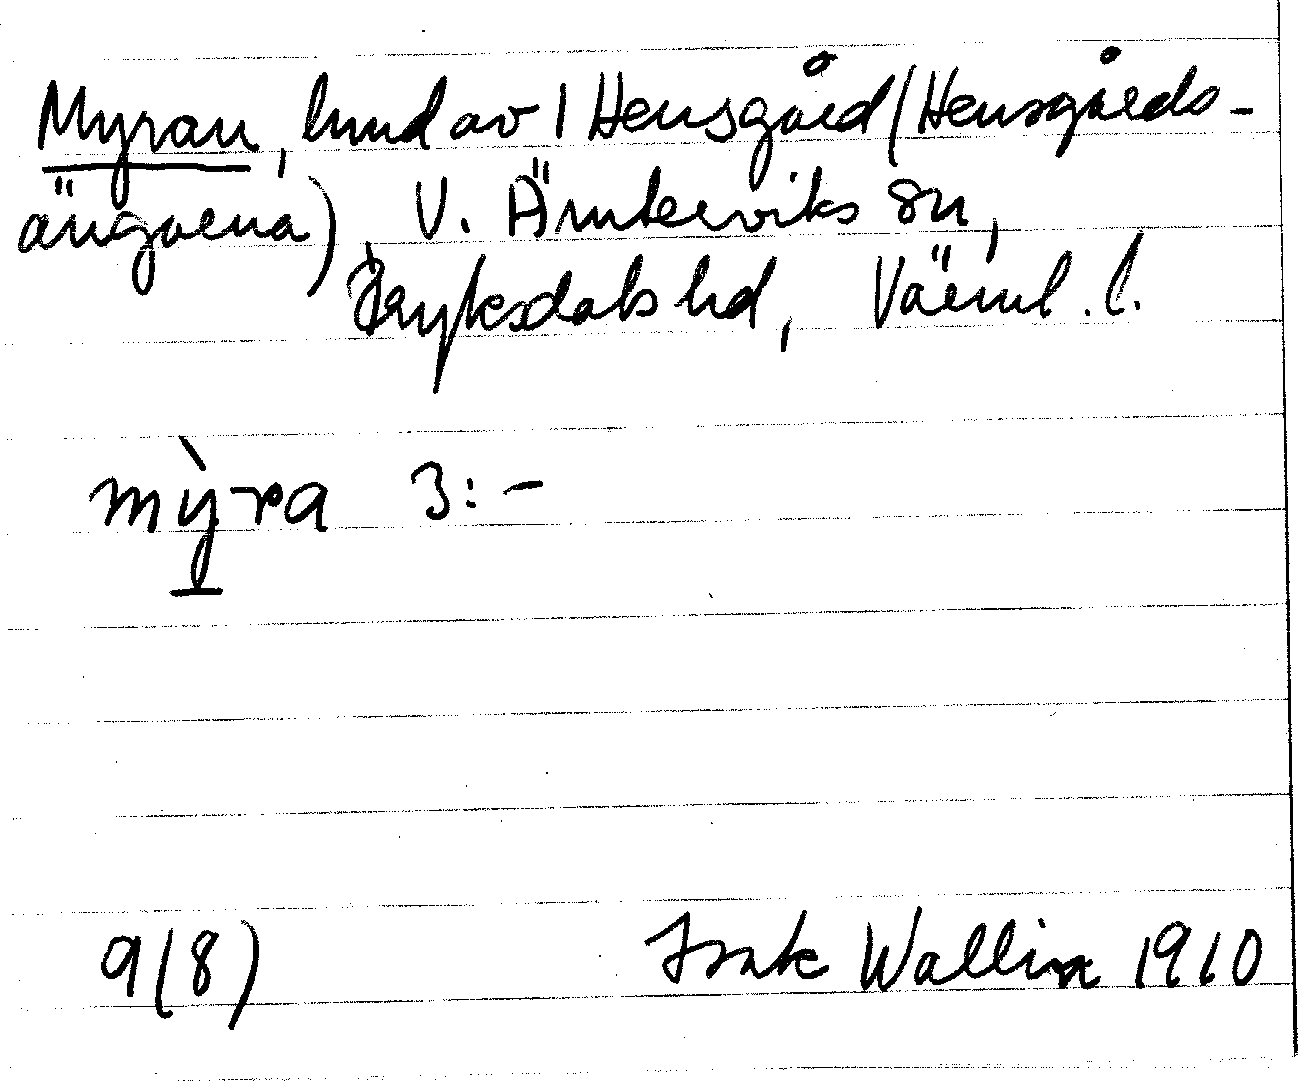 Myran, hmd av 1 Hensgård (Hensgårds-
ängarna), V. Ämterviks sn,
Fryksdals hd, Värml. l.
mỳra 3:-
9(8) Isak Wallin 1910